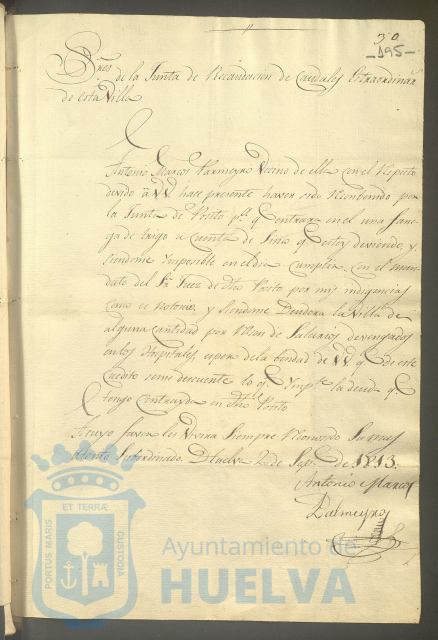 30
-195-
Sres. de la Junta de Recaudacion de Caudales Extraordinar
de esta Villa
Antonio Marcos Palmeyro Vecino de ella con el Respecto
devido a VV. hace presente haver sido Reconbenido por
la Junta de Posito pa. q. entrara en el una fane-
ga de trigo a cuenta de sinco q. estoy deviendo, y
siendome Ymposible en el dia cumplir con el man-
dato del Sr. Juez de dho Posito por mis indigencias
como es notorio, y siendome Deudora la Villa de
alguna cantidad por Rason de Salarios devengados
en los Hospitales espera de la bondad de VV. q. de este
Credito se me descuente lo q. Ympte. la deuda q.
tengo contrayda en dho Posito
A cuyo favor les vivira siempre Reconosido su mas
atento Subordinado. Huelva 2 de Sepe. de 1813.
Antonio Marcos
Palmeyro
PORTUS MARIS ET TERRÆ CUSTODIA
Ayuntamiento de
HUELVA